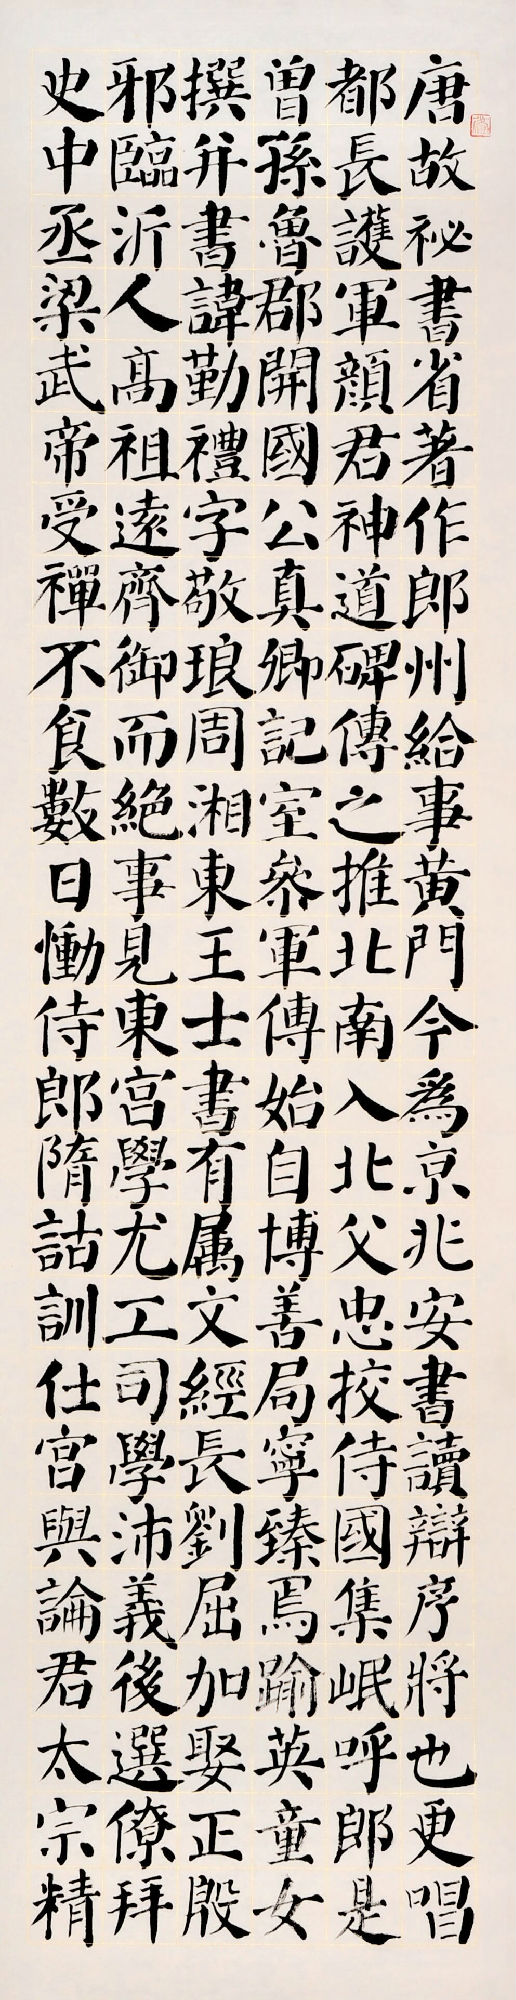 唐故祕書省著作郎州給事黄門今爲京兆安書讀辯序將也更唱
都長護軍顔君神道碑傳之推北南入北父忠挍侍國集岷呼郎是
曾孫魯郡開國公真卿記室参軍傳始自博善局寧臻焉踰英童女
撰并書諱勤禮字敬琅周湘東王士書有属文經長劉屈加娶正殷
邪臨沂人高祖遠齊御而絶事見東宫學尤工司學沛義後選僚拜
史中丞梁武帝受禪不食數日慟侍郎隋詁訓仕宫與論君太宗精